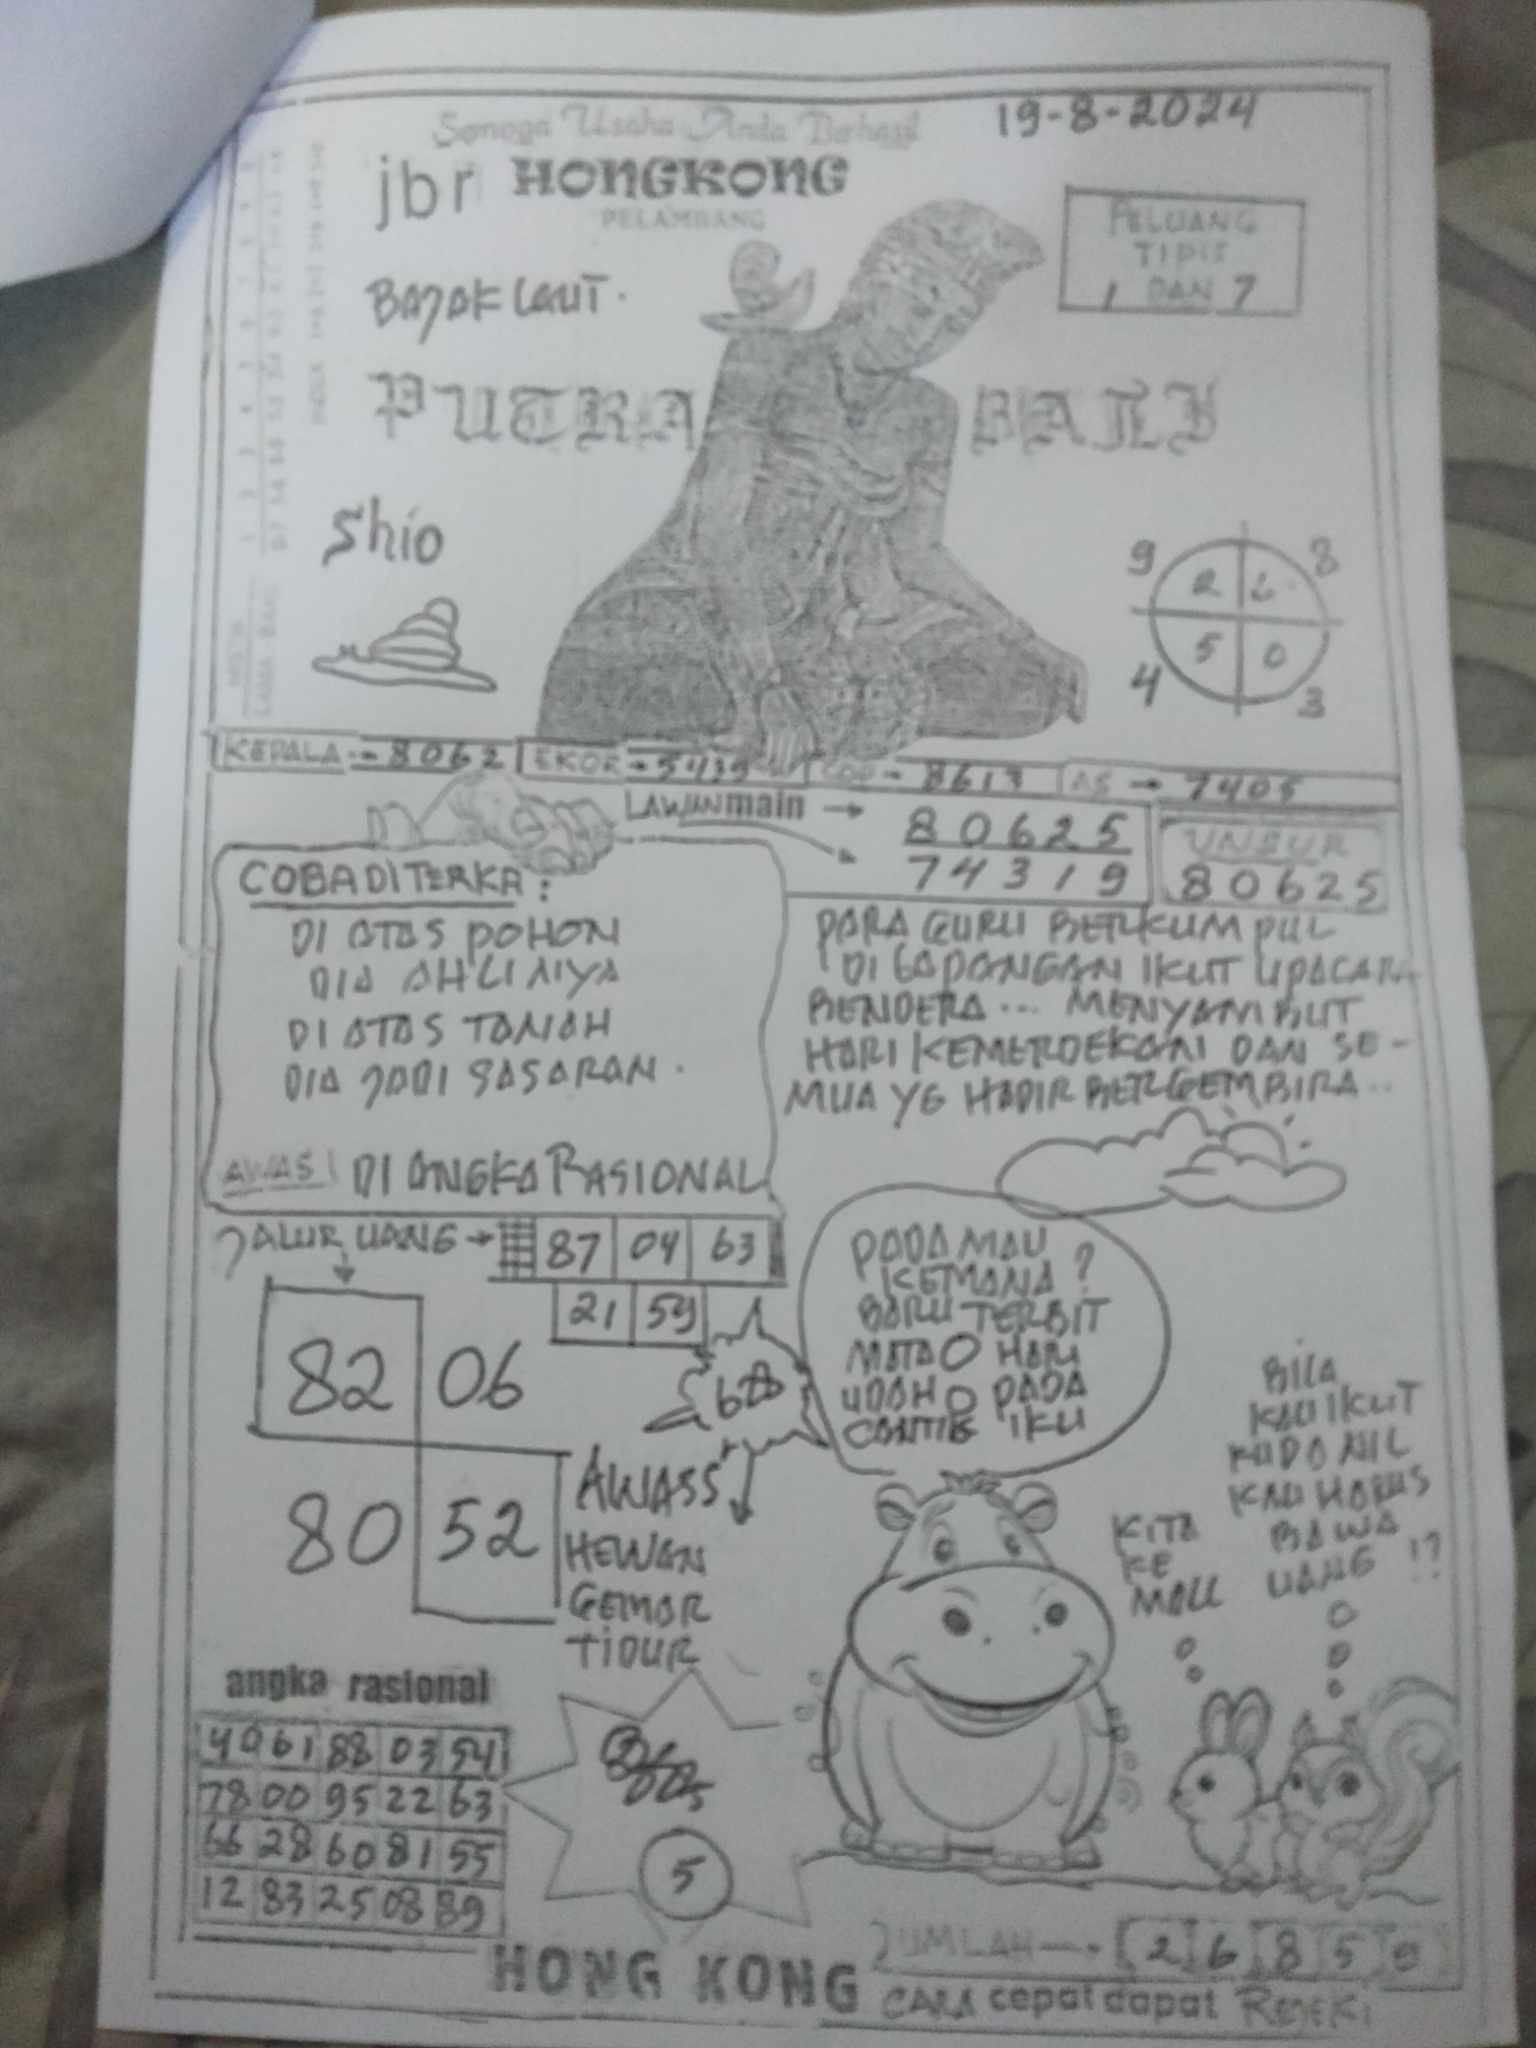 Semoga Usaha Anda Berhasil
19-8-2024
jbr HONGKONG
PELAMBANG
PELUANG
TIPIS
1 DAN 7
BAJAK LAUT.
PUTRA BALI
Shio
9 8
2 6
5 0
4 3
KEPALA 8062 EKOR 5439 COP 8613 AS 7405
LAWAN main
80625
74319
UNSUR
80625
COBA DI TERKA :
DI ATAS POHON
DIA AHLINIYA
DI ATAS TANAH
DIA JADI SASARAN.
AWAS! DI ANGKA RASIONAL
PARA GURU BERKUMPUL
DI LAPANGAN IKUT UPACARA
BENDERA... MENYAMBUT
HARI KEMERDEKAAN DAN SE-
MUA YG HADIR BERGEMBIRA..
JALUR UANG
87 04 63
21 59
82 06
80 52
AWASS
HEWAN
GEMAR
TIDUR
PADA MAU
KEMANA ?
BARU TERBIT
MATA O HARI
UDAH O PADA
CANTIK IKU
KITA
KE
MALL
BILA
KAU IKUT
KUDA NIL
KAU HARUS
BAWA
UANG !?
angka rasional
40 61 88 03 54
78 00 95 22 63
66 28 60 81 55
12 83 25 08 89
5
HONG KONG
JUMLAH 2 6 8 5 9
CARA cepat dapat REJEKI